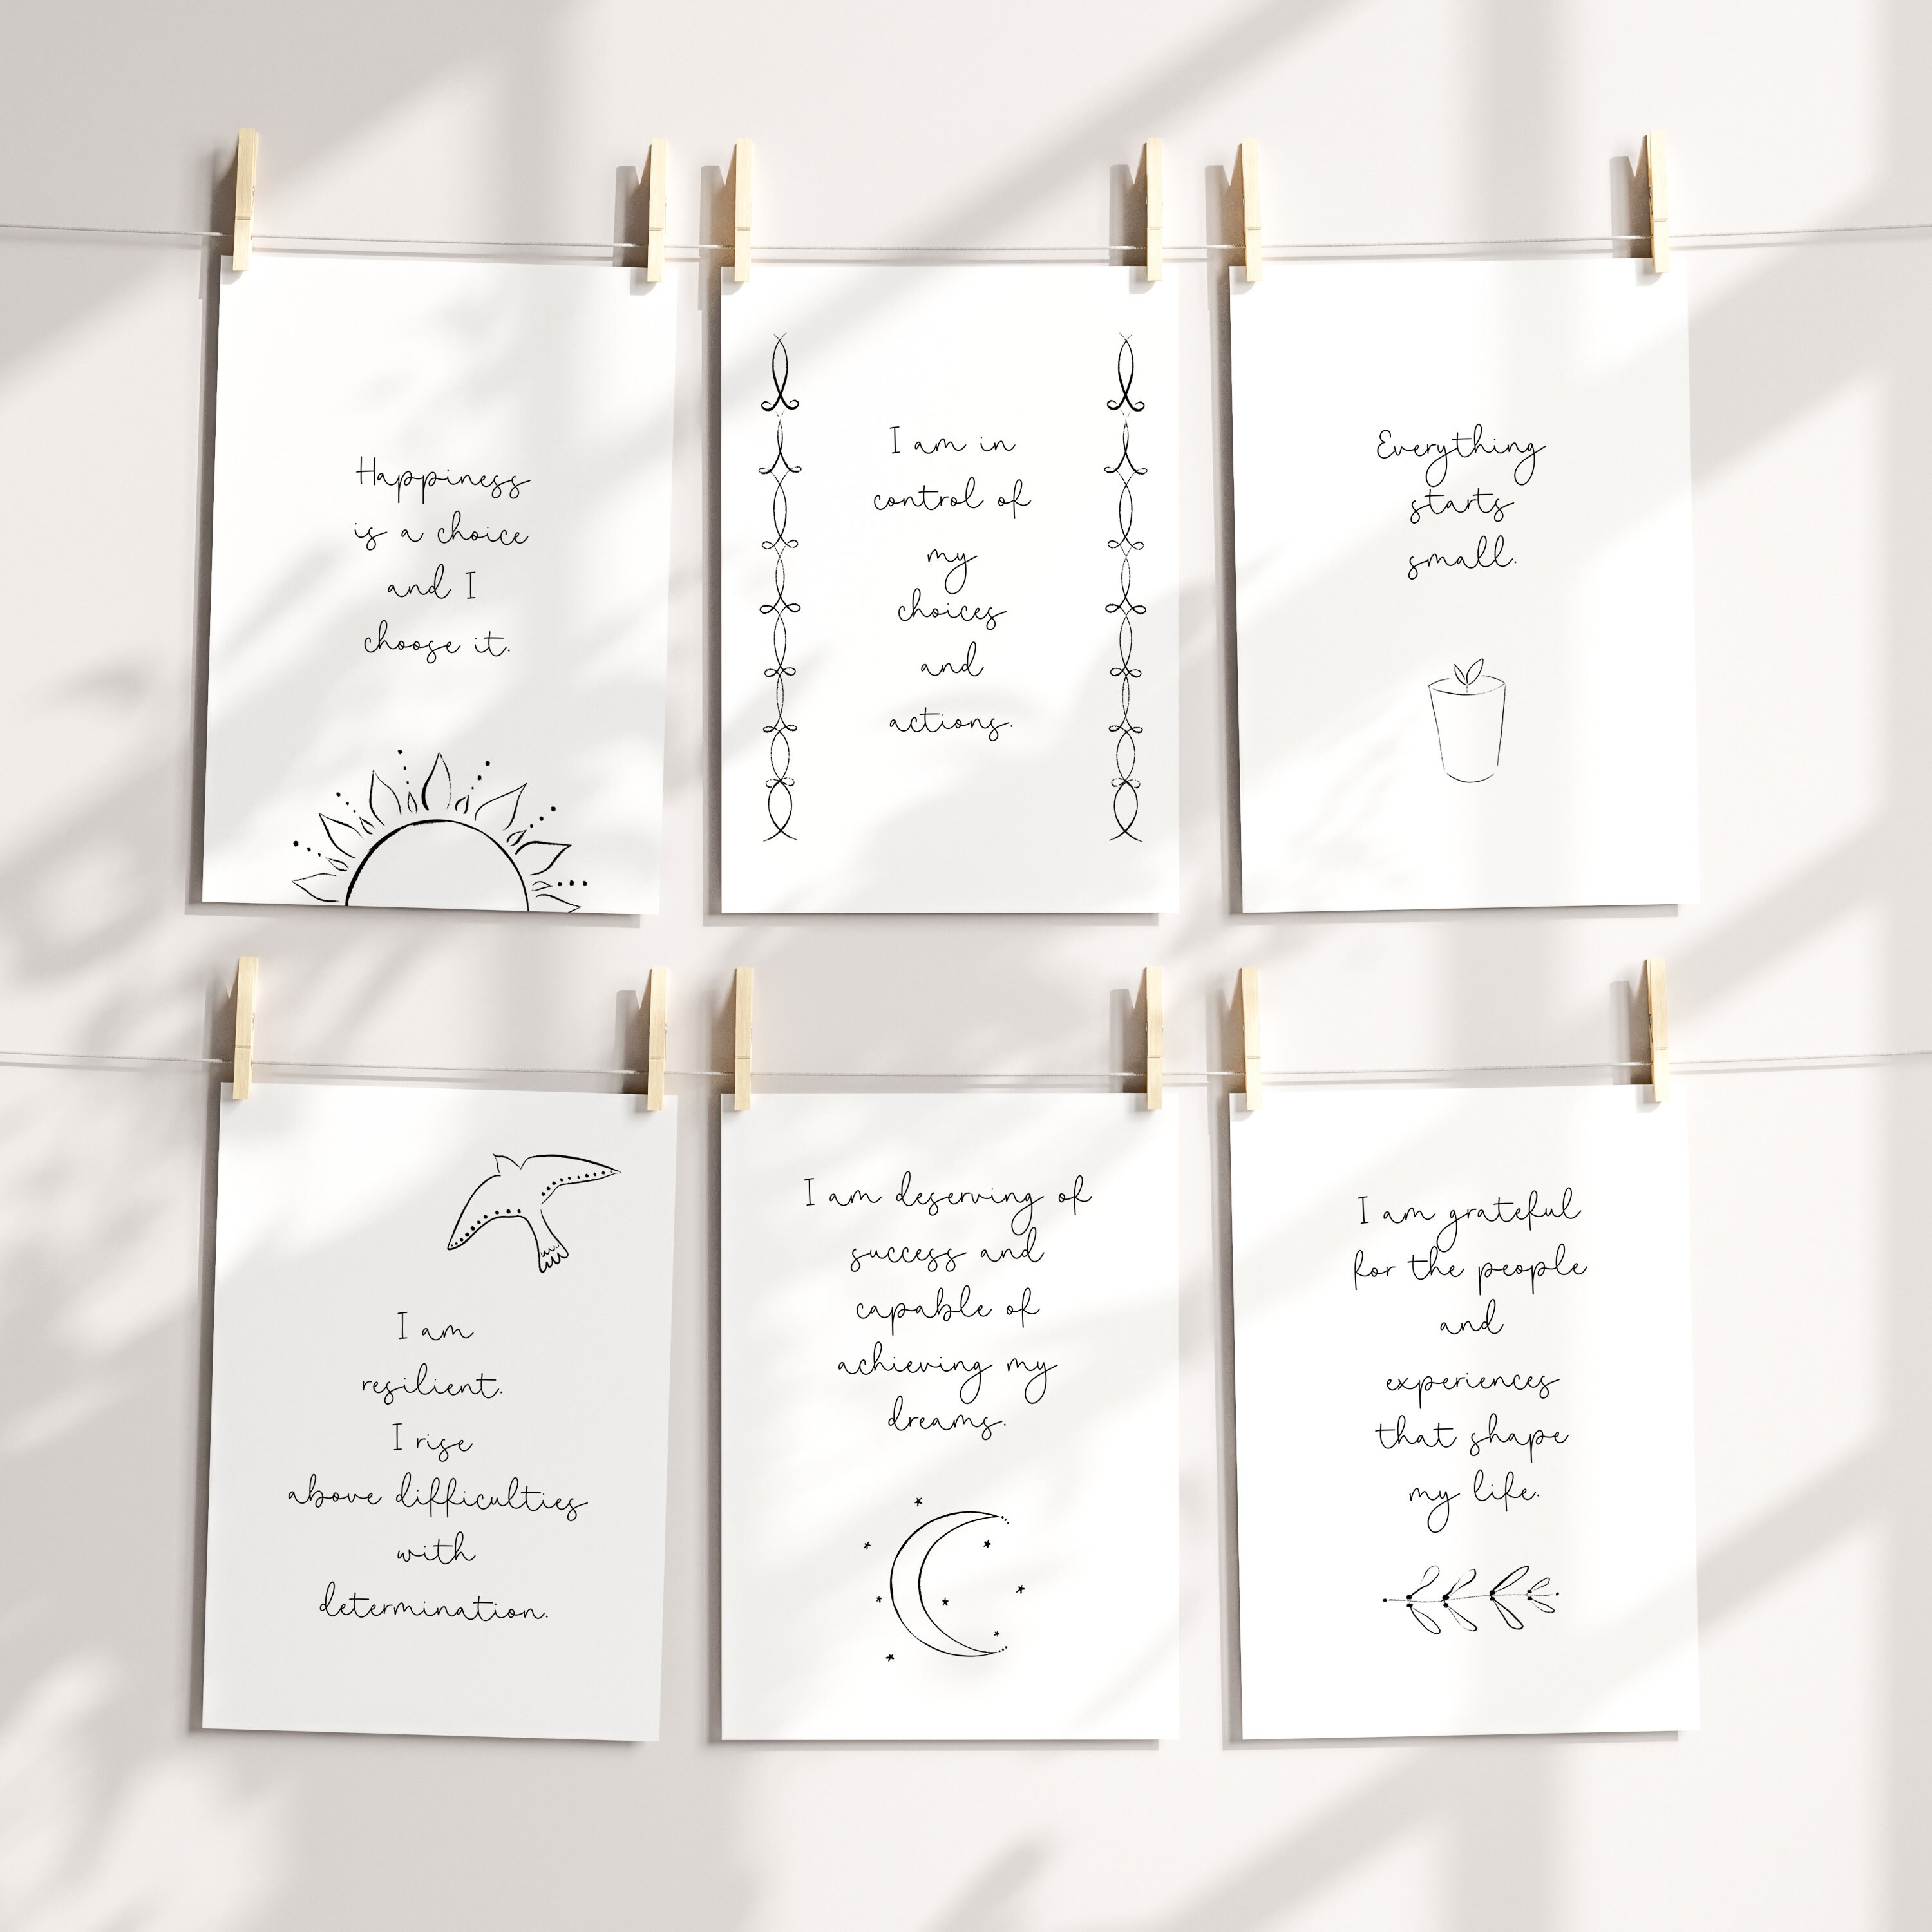 Happiness
is a choice
and I
choose it.
I am in
control of
my
choices
and
actions.
Everything
starts
small.
I am
resilient.
I rise
above difficulties
with
determination.
I am deserving of
success and
capable of
achieving my
dreams.
I am grateful
for the people
and
experiences
that shape
my life.